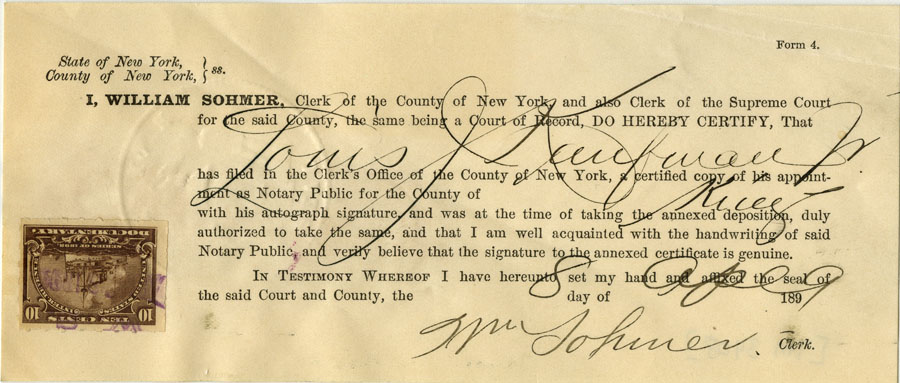 Form 4.
State of New York, }
County of New York, } ss.
I, WILLIAM SOHMER, Clerk of the County of New York, and also Clerk of the Supreme Court
for the said County, the same being a Court of Record, DO HEREBY CERTIFY, That
Louis J Kaufman Jr
has filed in the Clerk's Office of the County of New York, a certified copy of his appoint-
ment as Notary Public for the County of Kings
with his autograph signature, and was at the time of taking the annexed deposition, duly
authorized to take the same, and that I am well acquainted with the handwriting of said
Notary Public, and verily believe that the signature to the annexed certificate is genuine.
IN TESTIMONY WHEREOF I have hereunto set my hand and affixed the seal of
the said Court and County, the 8 day of Apl 1899
Wm Sohmer. Clerk.
DOCUMENTARY
TEN CENTS
10 10